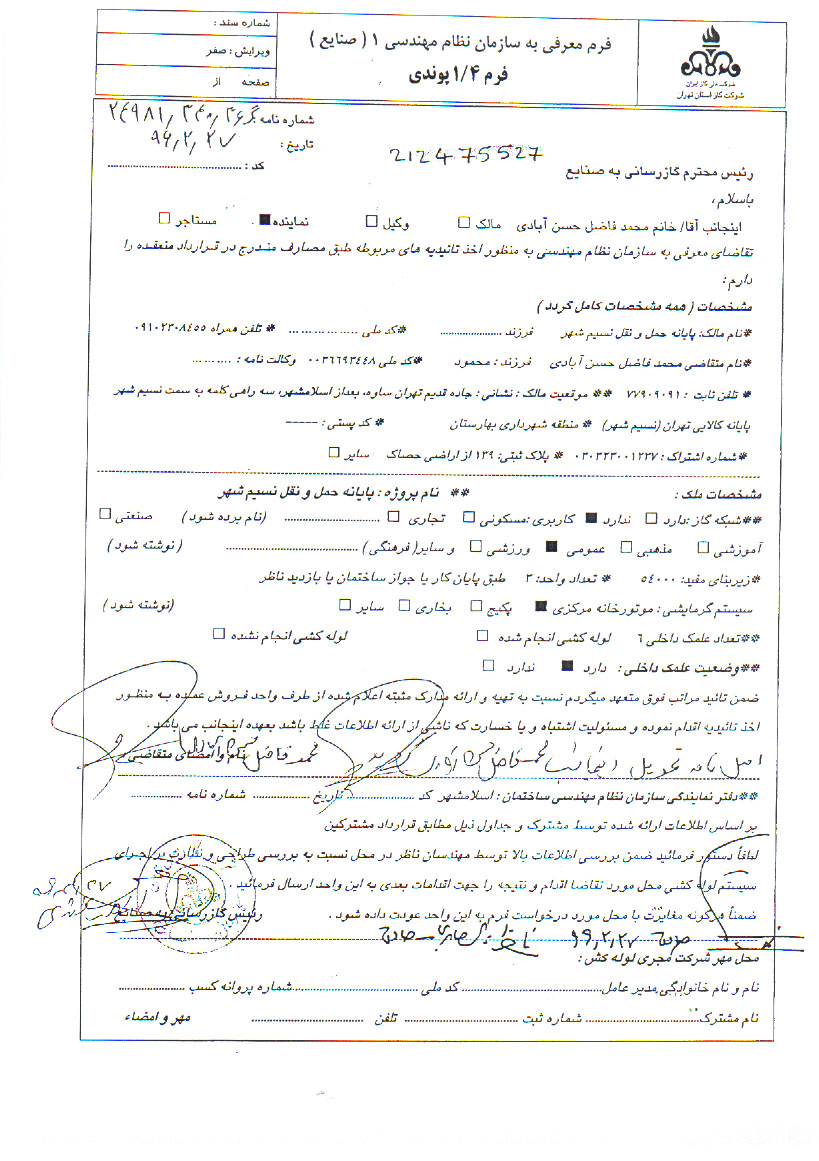 شماره سند :
فرم معرفی به سازمان نظام مهندسی ۱ ( صنایع )
ویرایش : صفر
فرم ۱/۴ پوندی
صفحه از
شرکت ملی گاز ایران
شرکت گاز استان تهران
شماره نامه
تاریخ : ۹۶٫۲٫۲۷
212475527
کد : ........................
رئیس محترم گازرسانی به صنایع
باسلام ،
اینجانب آقا/ خانم محمد فاضل حسن آبادی مالک □ وکیل □ نماینده ■ مستاجر □
تقاضای معرفی به سازمان نظام مهندسی به منظور اخذ تائیدیه های مربوطه طبق مصارف مندرج در قرارداد منعقده را
دارم :
مشخصات ( همه مشخصات کامل گردد )
*نام مالک: پایانه حمل و نقل نسیم شهر فرزند ................ *کد ملی ................ * تلفن همراه ۰۹۱۰۲۳۰۸۴۵۵
*نام متقاضی محمد فاضل حسن آبادی فرزند : محمود *کد ملی ۰۰۳۶۶۹۳۴۴۸ وکالت نامه : .........
* تلفن ثابت : ۷۷۹۰۹۰۹۱ ** موقعیت مالک : نشانی : جاده قدیم تهران ساوه، بعداز اسلامشهر، سه راهی کلمه به سمت نسیم شهر
پایانه کالایی تهران (نسیم شهر) * منطقه شهرداری بهارستان * کد پستی : -----
*شماره اشتراک : ۰۳۰۳۲۳۰۰۱۲۳۷ * پلاک ثبتی: ۱۳۹ از اراضی حصاک سایر □
مشخصات ملک : ** نام پروژه : پایانه حمل و نقل نسیم شهر
**شبکه گاز :دارد □ ندارد ■ کاربری :مسکونی □ تجاری □ ........................ (نام برده شود ) صنعتی □
آموزشی □ مذهبی □ عمومی ■ ورزشی □ و سایر( فرهنگی ) ........................ ( نوشته شود )
*زیربنای مفید: ۵۴۰۰۰ * تعداد واحد: ۲ طبق پایان کار یا جواز ساختمان یا بازدید ناظر
سیستم گرمایشی : موتورخانه مرکزی ■ پکیج □ بخاری □ سایر □ (نوشته شود )
**تعداد علمک داخلی ۶ لوله کشی انجام شده □ لوله کشی انجام نشده □
**وضعیت علمک داخلی : دارد ■ ندارد □
ضمن تائید مراتب فوق متعهد میگردم نسبت به تهیه و ارائه مدارک مثبته اعلام شده از طرف واحد فروش عمده به منظور
اخذ تائیدیه اقدام نموده و مسئولیت اشتباه و یا خسارت که ناشی از ارائه اطلاعات غلط باشد بعهده اینجانب می باشد .
نام و امضای متقاضی
اصل نامه تحویل اینجانب محمد فاضل حسن آبادی گردید
**دفتر نمایندگی سازمان نظام مهندسی ساختمان : اسلامشهر کد ................ تاریخ ................ شماره نامه ............
بر اساس اطلاعات ارائه شده توسط مشترک و جداول ذیل مطابق قرارداد مشترکین
لطفاً دستور فرمائید ضمن بررسی اطلاعات بالا توسط مهندسان ناظر در محل نسبت به بررسی طراحی و نظارت بر اجرای
سیستم لوله کشی محل مورد تقاضا اقدام و نتیجه را جهت اقدامات بعدی به این واحد ارسال فرمائید .
ضمناً هرگونه مغایرت با محل مورد درخواست فرم به این واحد عودت داده شود . رئیس گازرسانی به صنایع
۹۶٫۲٫۲۷
محل مهر شرکت مجری لوله کش :
نام و نام خانوادگی مدیر عامل........................ کد ملی ........................شماره پروانه کسب ................
نام مشترک........................ شماره ثبت ........................ تلفن ........................ مهر و امضاء